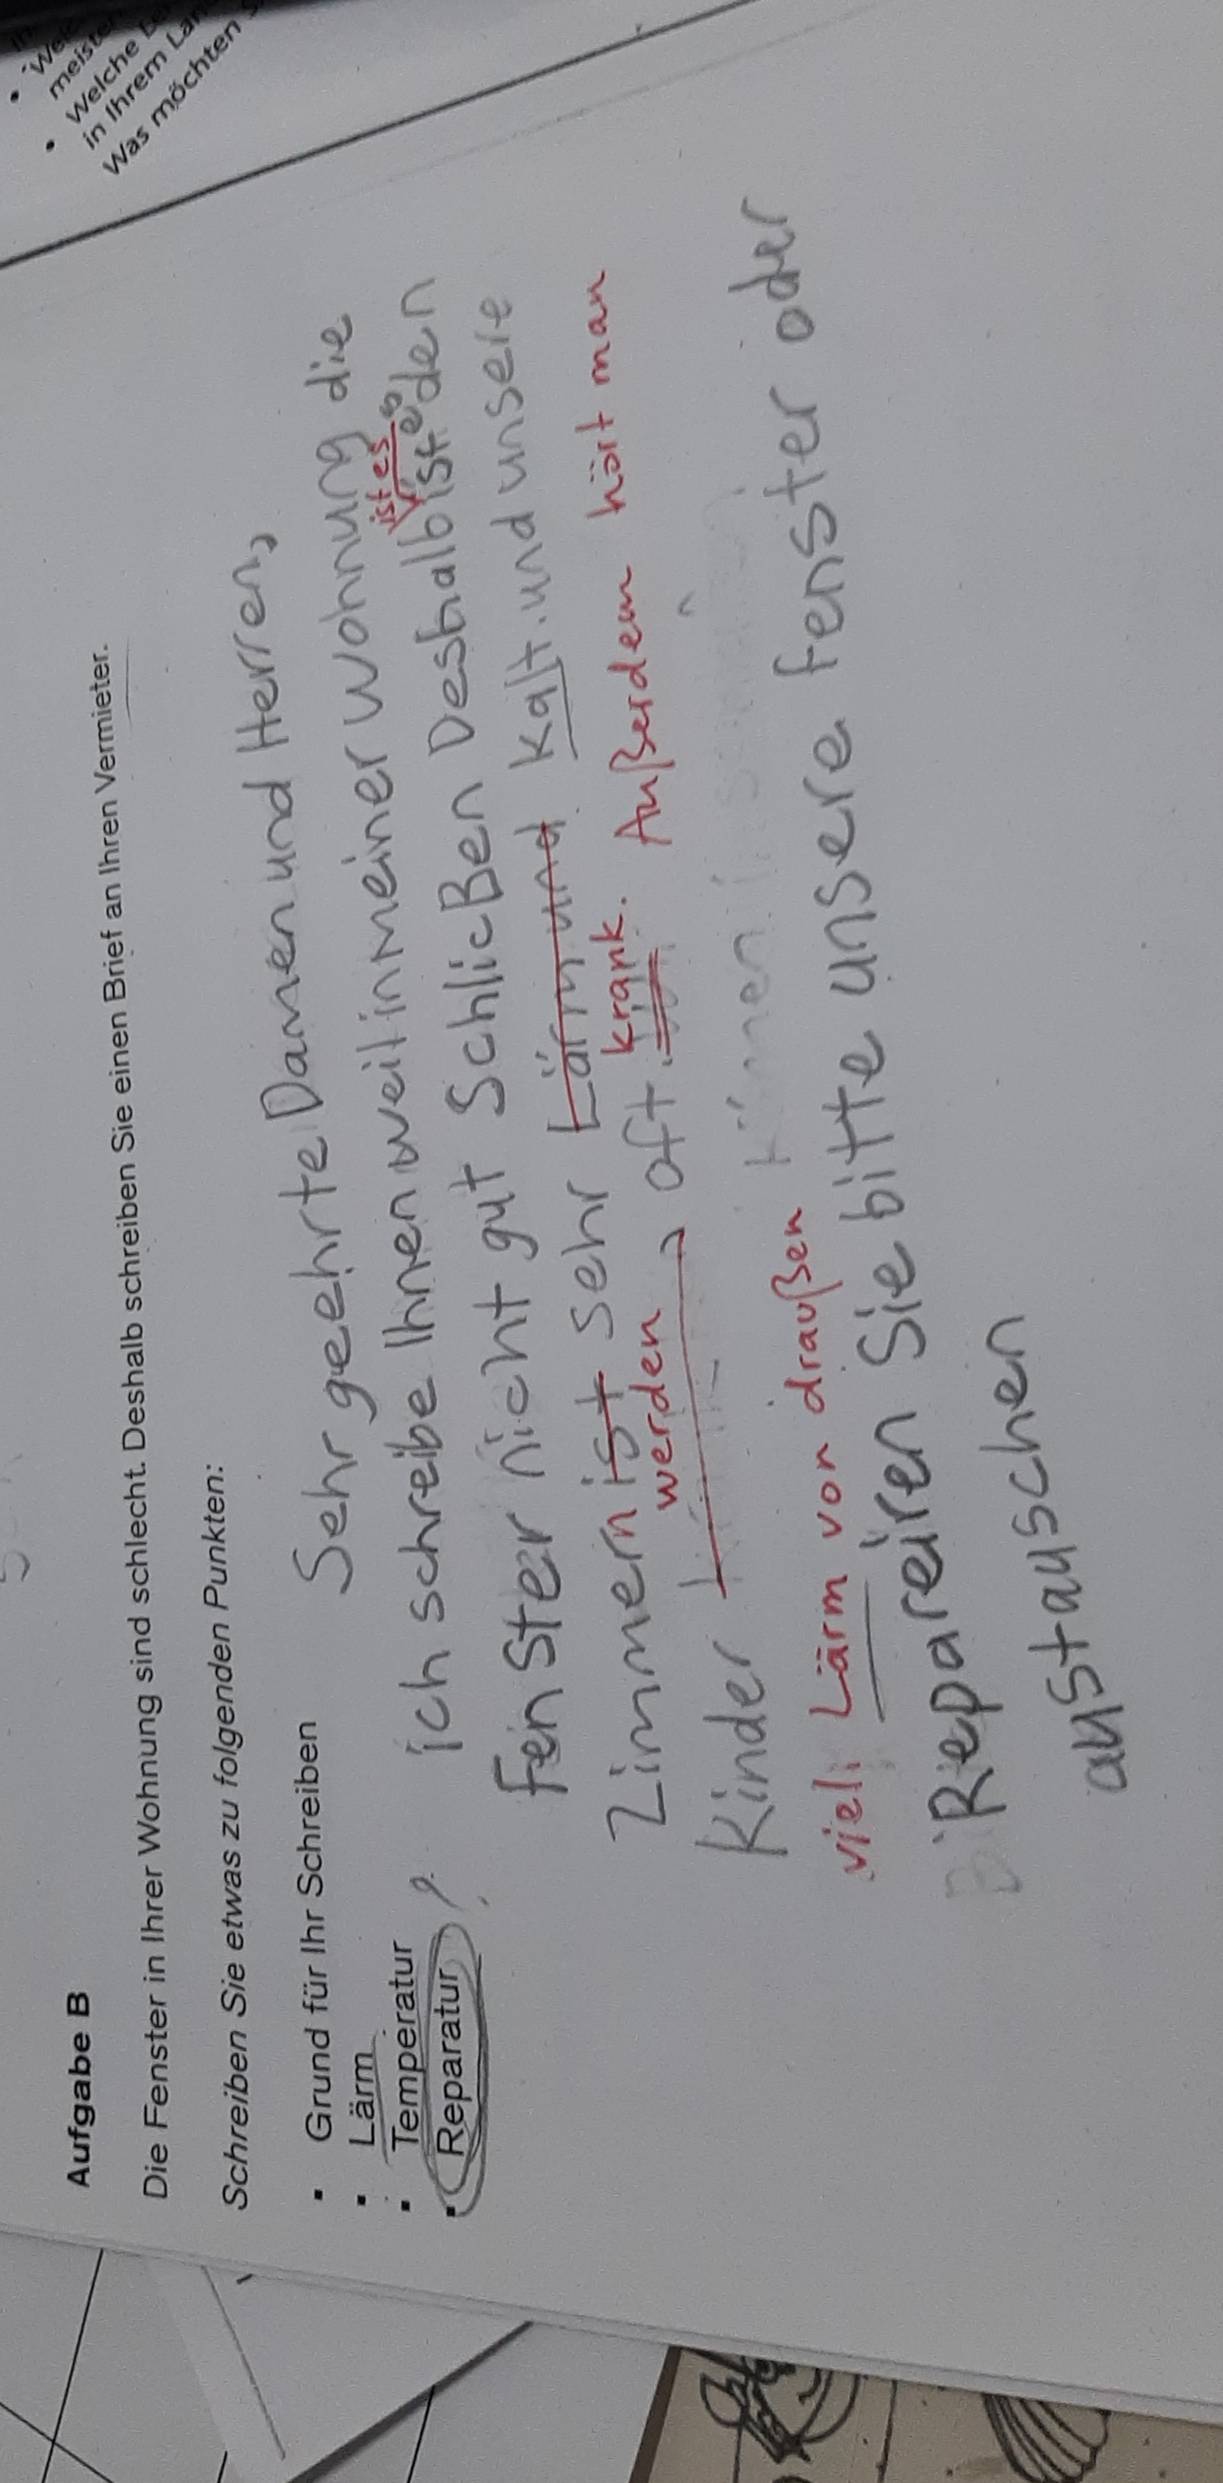 meisten
Welche
in Ihrem Lan
Was möchten
Aufgabe B
Die Fenster in Ihrer Wohnung sind schlecht. Deshalb schreiben Sie einen Brief an Ihren Vermieter.
Schreiben Sie etwas zu folgenden Punkten:
• Grund für Ihr Schreiben
• Lärm
• Temperatur
• Reparatur
Sehr geehrte Damen und Herren,
ich schreibe Ihnen weil in meiner Wohnung die
ist es
Fenster nicht gut SchlieBen Deshalb ist es den
Zimmern ist sehr Lärm und kalt. und unsere
werden krank. Außerdem hört man
Kinder oft
viel Lärm von draußen
Reparieren Sie bitte unsere fenster oder
austauschen